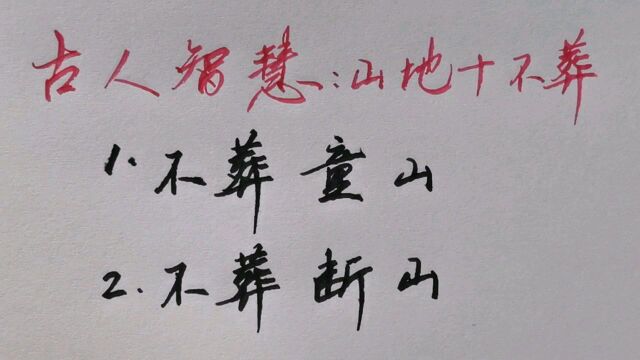 古人智慧:山地十不葬
1.不葬童山
2.不葬断山